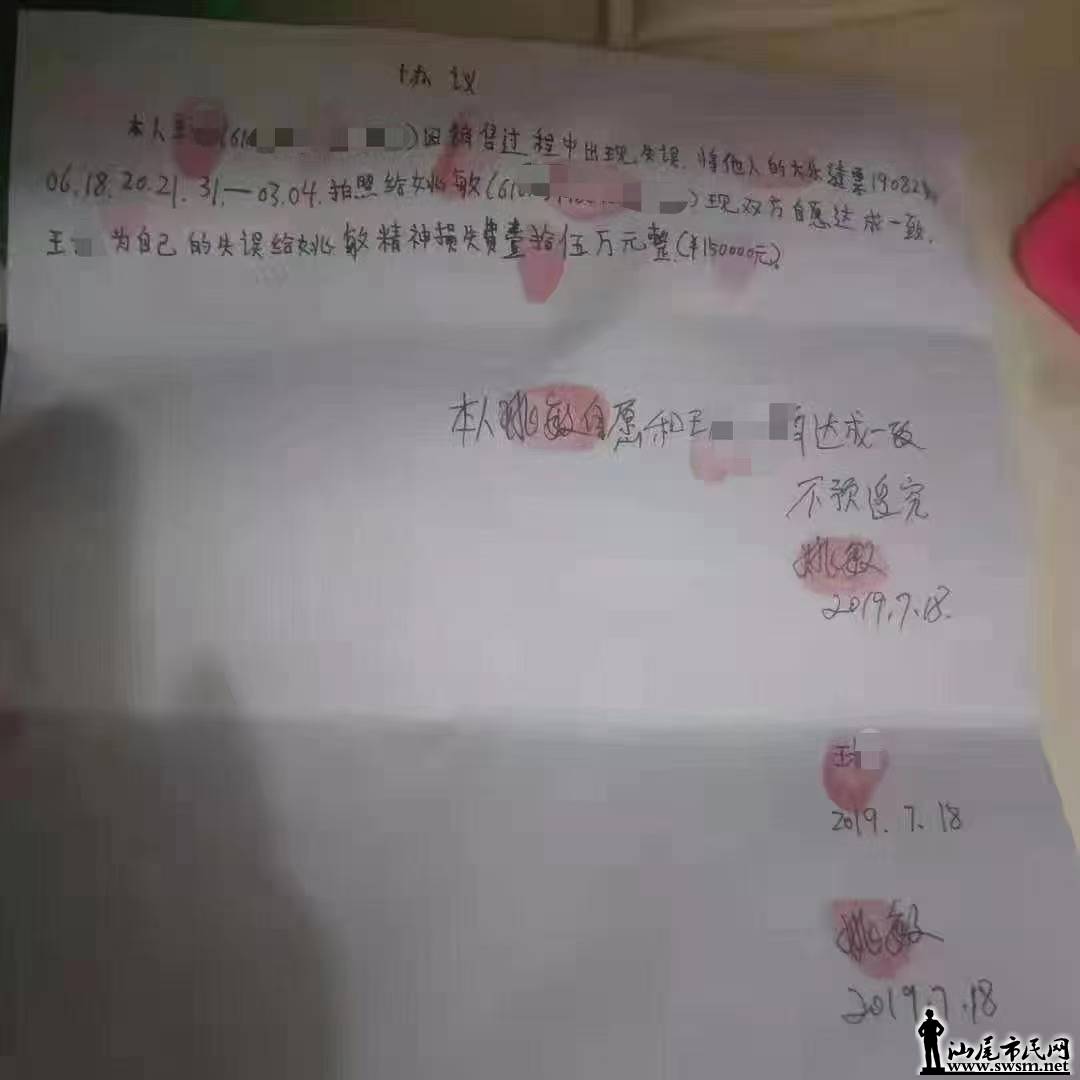 协议
本人王(610)因销售过程中出现失误,将他人的大乐透票19082期,
06.18.20.21.31.—03.04.拍照给姚敏(610)现双方自愿达成一致,
王 为自己的失误给姚敏精神损失费壹拾伍万元整.(¥150000元)。
本人姚敏自愿和王 达成一致
不预追究
姚敏
2019.7.18.
王
2019.7.18
姚敏
2019.7.18
汕尾市民网
www.swsm.net